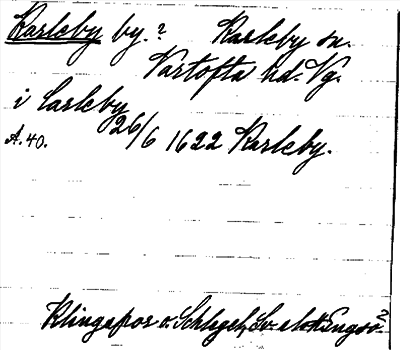 Karleby by.? Karleby sn.
Vartofta hd. Vg.
i Carleby 26/6 1622 Karleby.
A. 40.
Klingspor o. Schlegel, Sv.